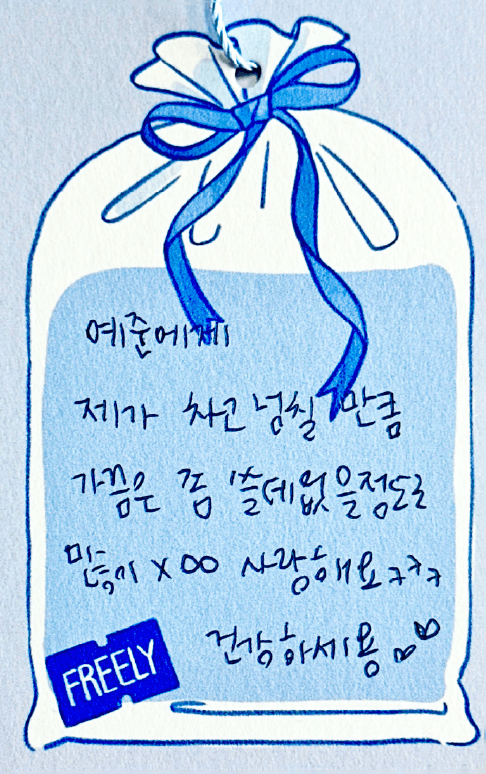 예준에게
제가 차고 넘칠 만큼
가끔은 좀 쓸데없을정도로
많이 x ∞ 사랑해요ㅋㅋㅋ
건강하세용 ♡♡
FREELY